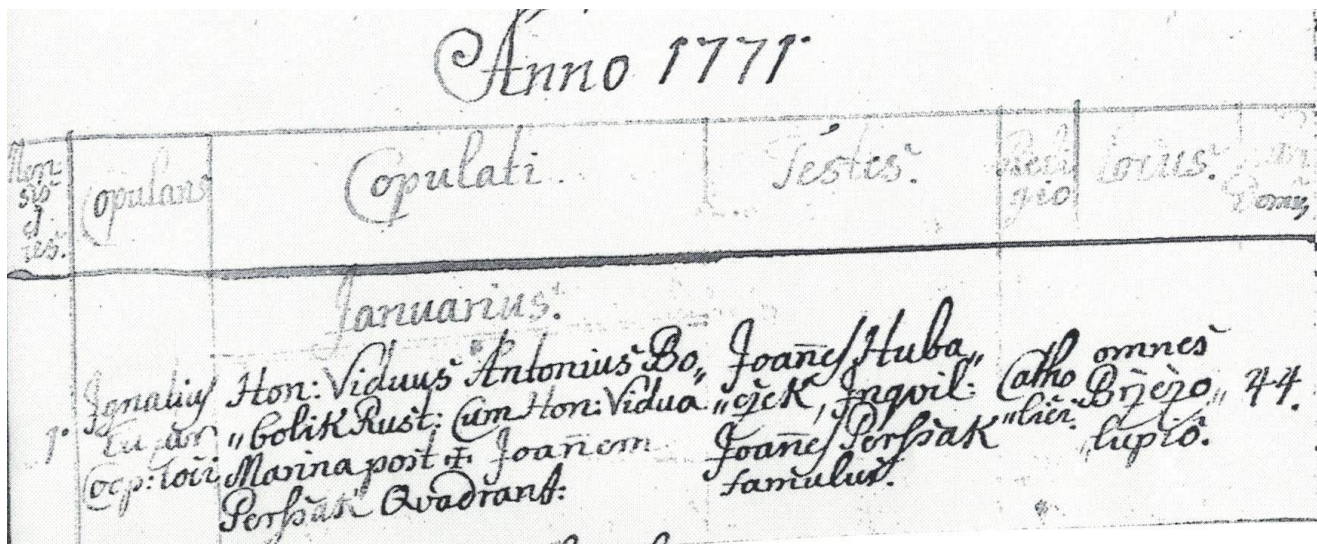 Anno 1771.
Men-
sis
d
ies.
Copulans
Copulati.
Testes.
Reli
gio
Locus.
Domus
Januarius.
1.
Ignatius
Coop: loci
Hon: Viduus Antonius Bo„
„bolik Rust: Cum Hon: Vidua
Marina post ✝. Joan̄em
Perſsak Qvadrant:
Joan̄eſ Huba„
„cżek, Inqvil:
Joan̄eſ Perſsak
famulus.
Catho
„lici.
omnes
Brżeżo„
„lupiō.
44.